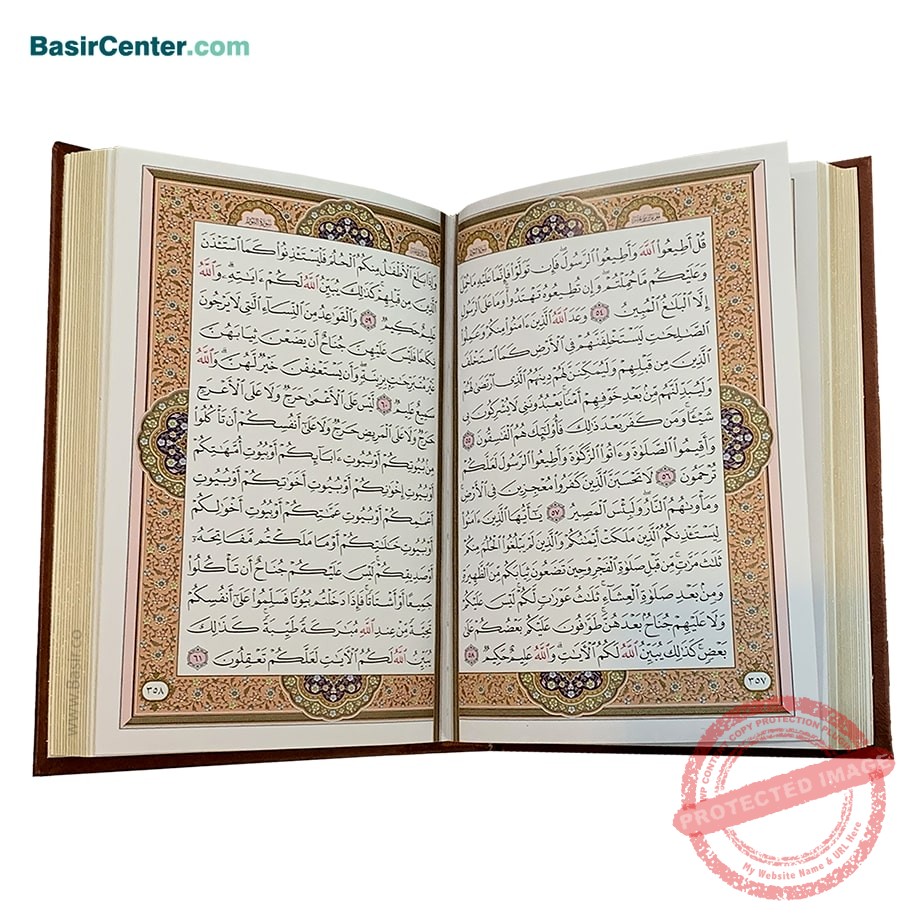 BasirCenter.com
قُلْ أَطِيعُوا۟ ٱللَّهَ وَأَطِيعُوا۟ ٱلرَّسُولَ فَإِن تَوَلَّوْا۟ فَإِنَّمَا عَلَيْهِ مَا حُمِّلَ
وَعَلَيْكُم مَّا حُمِّلْتُمْ وَإِن تُطِيعُوهُ تَهْتَدُوا۟ وَمَا عَلَى ٱلرَّسُولِ
إِلَّا ٱلْبَلَٰغُ ٱلْمُبِينُ ٥٤ وَعَدَ ٱللَّهُ ٱلَّذِينَ ءَامَنُوا۟ مِنكُمْ وَعَمِلُوا۟
ٱلصَّٰلِحَٰتِ لَيَسْتَخْلِفَنَّهُمْ فِى ٱلْأَرْضِ كَمَا ٱسْتَخْلَفَ
ٱلَّذِينَ مِن قَبْلِهِمْ وَلَيُمَكِّنَنَّ لَهُمْ دِينَهُمُ ٱلَّذِى ٱرْتَضَىٰ لَهُمْ
وَلَيُبَدِّلَنَّهُم مِّنۢ بَعْدِ خَوْفِهِمْ أَمْنًا يَعْبُدُونَنِى لَا يُشْرِكُونَ بِى
شَيْـًٔا وَمَن كَفَرَ بَعْدَ ذَٰلِكَ فَأُو۟لَٰٓئِكَ هُمُ ٱلْفَٰسِقُونَ ٥٥
وَأَقِيمُوا۟ ٱلصَّلَوٰةَ وَءَاتُوا۟ ٱلزَّكَوٰةَ وَأَطِيعُوا۟ ٱلرَّسُولَ لَعَلَّكُمْ
تُرْحَمُونَ ٥٦ لَا تَحْسَبَنَّ ٱلَّذِينَ كَفَرُوا۟ مُعْجِزِينَ فِى ٱلْأَرْضِ
وَمَأْوَىٰهُمُ ٱلنَّارُ وَلَبِئْسَ ٱلْمَصِيرُ ٥٧ يَٰٓأَيُّهَا ٱلَّذِينَ ءَامَنُوا۟
لِيَسْتَـْٔذِنكُمُ ٱلَّذِينَ مَلَكَتْ أَيْمَٰنُكُمْ وَٱلَّذِينَ لَمْ يَبْلُغُوا۟ ٱلْحُلُمَ مِنكُمْ
ثَلَٰثَ مَرَّٰتٍ مِّن قَبْلِ صَلَوٰةِ ٱلْفَجْرِ وَحِينَ تَضَعُونَ ثِيَابَكُم مِّنَ ٱلظَّهِيرَةِ
وَمِنۢ بَعْدِ صَلَوٰةِ ٱلْعِشَآءِ ثَلَٰثُ عَوْرَٰتٍ لَّكُمْ لَيْسَ عَلَيْكُمْ
وَلَا عَلَيْهِمْ جُنَاحٌۢ بَعْدَهُنَّ طَوَّٰفُونَ عَلَيْكُم بَعْضُكُمْ عَلَىٰ
بَعْضٍ كَذَٰلِكَ يُبَيِّنُ ٱللَّهُ لَكُمُ ٱلْءَايَٰتِ وَٱللَّهُ عَلِيمٌ حَكِيمٌ ٥٨
٣٥٧
سورة النور
وَإِذَا بَلَغَ ٱلْأَطْفَٰلُ مِنكُمُ ٱلْحُلُمَ فَلْيَسْتَـْٔذِنُوا۟ كَمَا ٱسْتَـْٔذَنَ
ٱلَّذِينَ مِن قَبْلِهِمْ كَذَٰلِكَ يُبَيِّنُ ٱللَّهُ لَكُمْ ءَايَٰتِهِۦ وَٱللَّهُ
عَلِيمٌ حَكِيمٌ ٥٩ وَٱلْقَوَٰعِدُ مِنَ ٱلنِّسَآءِ ٱلَّٰتِى لَا يَرْجُونَ
نِكَاحًا فَلَيْسَ عَلَيْهِنَّ جُنَاحٌ أَن يَضَعْنَ ثِيَابَهُنَّ
غَيْرَ مُتَبَرِّجَٰتٍۭ بِزِينَةٍ وَأَن يَسْتَعْفِفْنَ خَيْرٌ لَّهُنَّ وَٱللَّهُ
سَمِيعٌ عَلِيمٌ ٦٠ لَّيْسَ عَلَى ٱلْأَعْمَىٰ حَرَجٌ وَلَا عَلَى ٱلْأَعْرَجِ
حَرَجٌ وَلَا عَلَى ٱلْمَرِيضِ حَرَجٌ وَلَا عَلَىٰٓ أَنفُسِكُمْ أَن تَأْكُلُوا۟
مِنۢ بُيُوتِكُمْ أَوْ بُيُوتِ ءَابَآئِكُمْ أَوْ بُيُوتِ أُمَّهَٰتِكُمْ
أَوْ بُيُوتِ إِخْوَٰنِكُمْ أَوْ بُيُوتِ أَخَوَٰتِكُمْ أَوْ بُيُوتِ
أَعْمَٰمِكُمْ أَوْ بُيُوتِ عَمَّٰتِكُمْ أَوْ بُيُوتِ أَخْوَٰلِكُمْ
أَوْ بُيُوتِ خَٰلَٰتِكُمْ أَوْ مَا مَلَكْتُم مَّفَاتِحَهُۥٓ
أَوْ صَدِيقِكُمْ لَيْسَ عَلَيْكُمْ جُنَاحٌ أَن تَأْكُلُوا۟
جَمِيعًا أَوْ أَشْتَاتًا فَإِذَا دَخَلْتُم بُيُوتًا فَسَلِّمُوا۟ عَلَىٰٓ أَنفُسِكُمْ
تَحِيَّةً مِّنْ عِندِ ٱللَّهِ مُبَٰرَكَةً طَيِّبَةً كَذَٰلِكَ
يُبَيِّنُ ٱللَّهُ لَكُمُ ٱلْءَايَٰتِ لَعَلَّكُمْ تَعْقِلُونَ ٦١
٣٥٨
PROTECTED IMAGE
My Website Name & URL Here